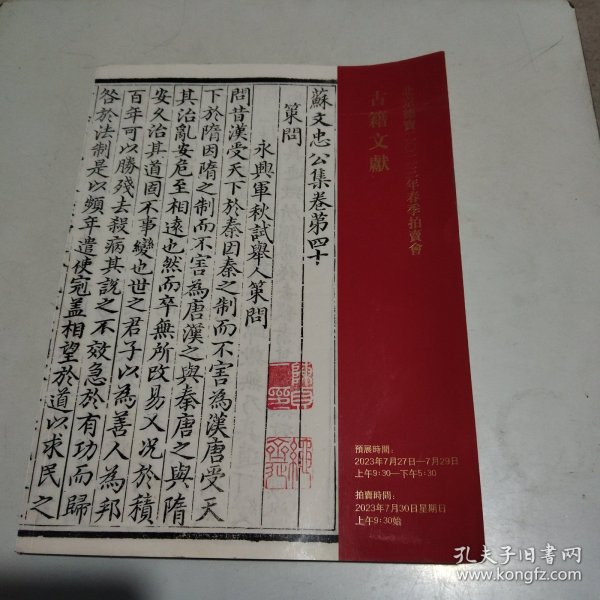 北京德寶二〇二三年春季拍賣會
古籍文獻
蘇文忠公集卷第四十
策問
永興軍秋試舉人策問
問昔漢受天下於秦因秦之制而不害為漢唐受天
下於隋因隋之制而不害為唐漢之與秦唐之與隋
其治亂安危至相遠也然而卒無所改易又况於積
安久治其道固不事變也世之君子以為善人為邦
百年可以勝殘去殺病其説之不效急於有功而歸
咎於法制是以頻年遣使冠盖相望於道以求民之
預展時間：
2023年7月27日—7月29日
上午9:30—下午5:30
拍賣時間：
2023年7月30日星期日
上午9:30始
孔夫子旧书网
www.kongfz.com